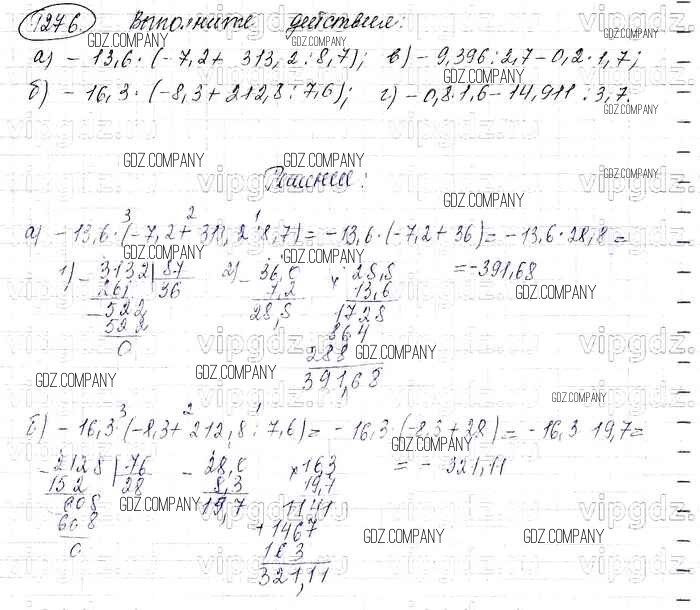 1276. Выполните действия:
а) - 13,6 · (- 7,2 + 313,2 : 8,7); в) - 9,396 : 2,7 - 0,2 · 1,7;
б) - 16,3 · (-8,3 + 212,8 : 7,6); г) - 0,8 · 1,6 - 14,911 : 3,7.
Решение:
3 2 1
а) - 13,6 · (- 7,2 + 313,2 : 8,7) = - 13,6 · (-7,2 + 36) = - 13,6 · 28,8 =
= -391,68
1) - 3132 | 87
261 36
- 522
522
0
2) - 36,0
7,2
28,8
× 28,8
13,6
1728
864
288
391,68
3 2 1
б) - 16,3 · (-8,3 + 212,8 : 7,6) = - 16,3 · (-8,3 + 28) = - 16,3 · 19,7 =
= - 321,11
- 2128 | 76
152 28
- 608
608
0
- 28,0
8,3
19,7
× 16,3
19,7
1141
+ 1467
163
321,11
GDZ.COMPANY
vipgdz.ru